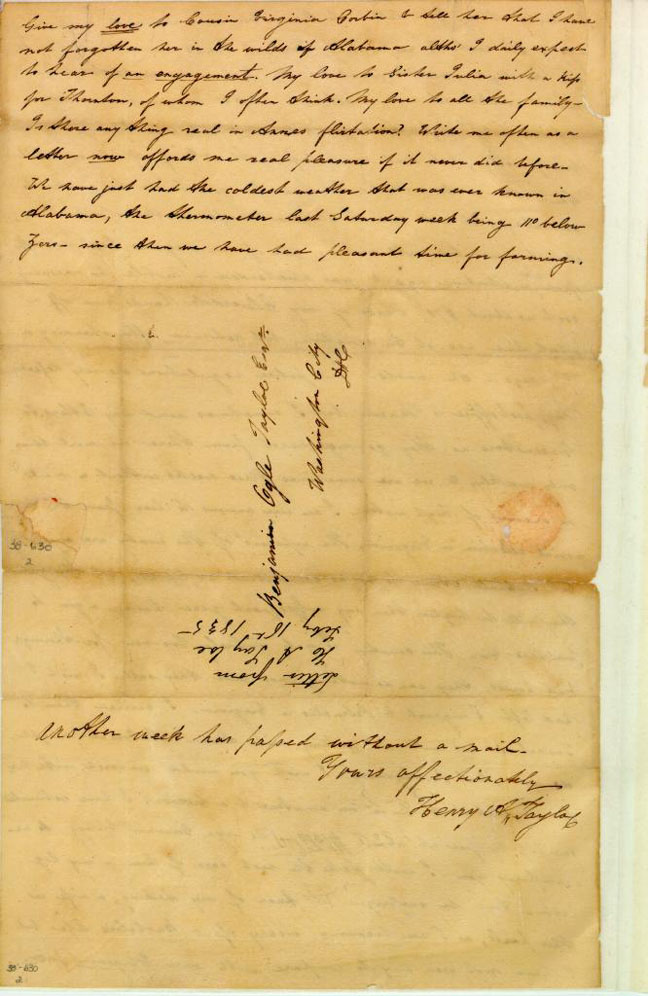 Give my love to Cousin Virginia Corbin & tell her that I have
not forgotten her in the wilds of Alabama altho' I daily expect
to hear of an engagement. My love to Sister Julia with a kiss
for Thornton, of whom I often think. My love to all the family-
Is there any thing real in Annes flirtation? Write me often as a
letter now affords me real pleasure if it never did before-
We have just had the coldest weather that was ever known in
Alabama, the thermometer last Saturday week being 11° below
Zero- since then we have had pleasant time for farming.
Benjamin Ogle Tayloe Esqr.
Washington City
DC
Letter from
H A Tayloe
Feby 16th 1835-
38-630
2
Another week has passed without a mail-
Yours affectionately
Henry A. Tayloe
38-630
2